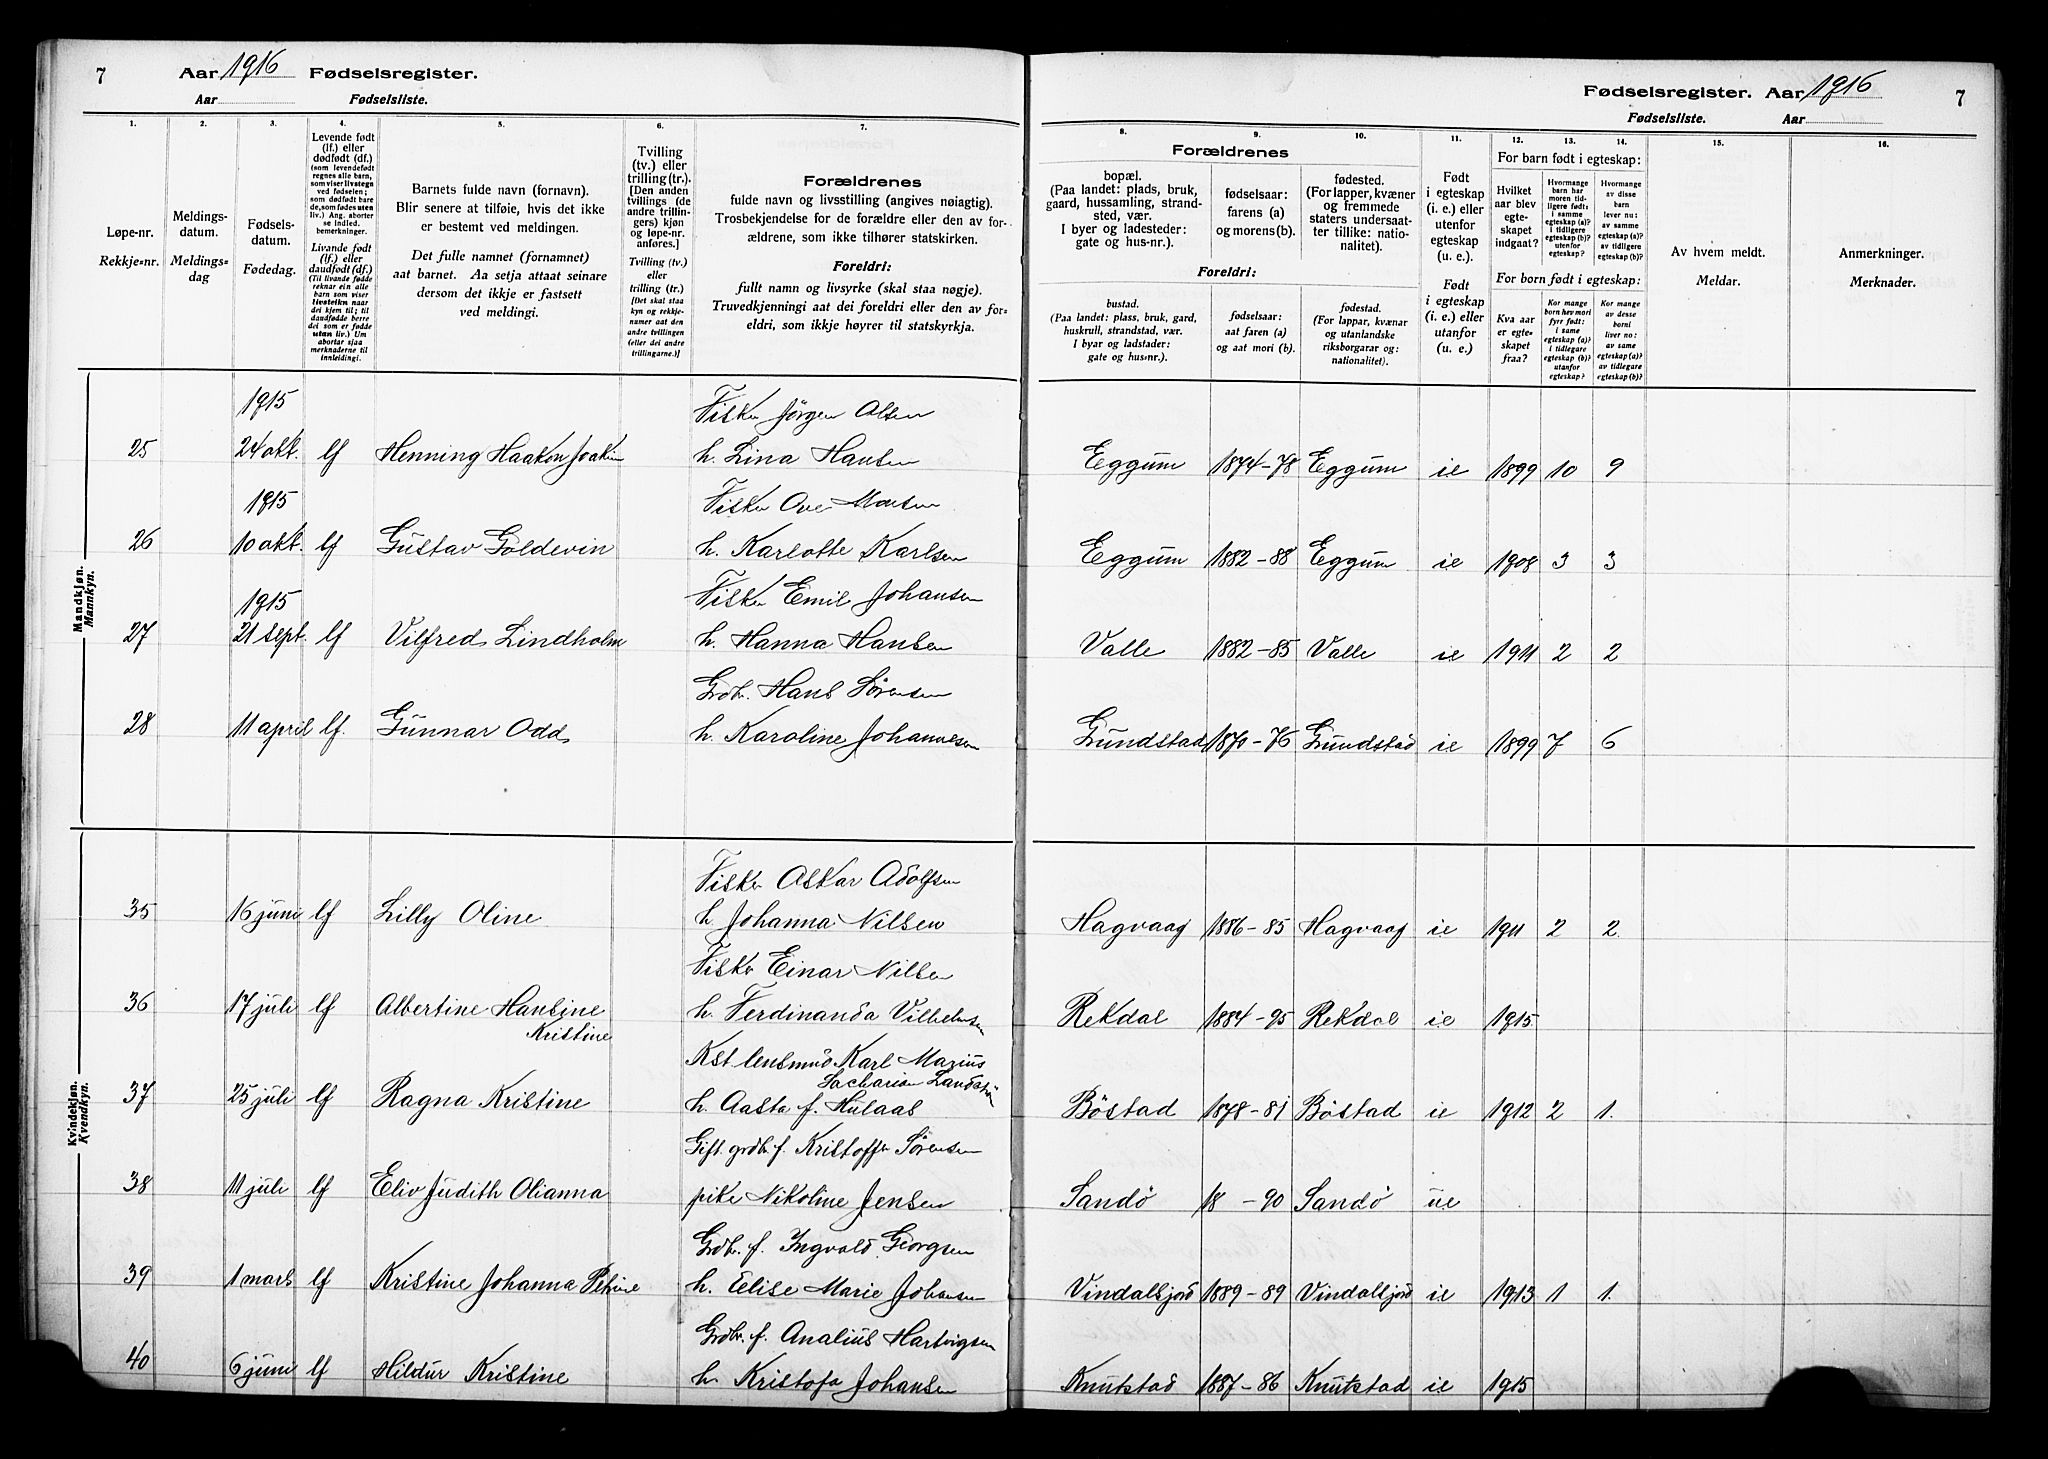 7 Aar 1916 Fødselsregister.
Aar Fødselsliste.
Fødselsregister. Aar 1916 7
Fødselsliste. Aar
1. 2. 3. 4. 5. 6. 7.
Løpe-nr.
Rekkje-nr.
Meldings-
datum.
Meldings-
dag
Fødsels-
datum.
Fødedag.
Levende født
(lf.) eller
dødfødt (df.)
(som levendefødt
regnes alle barn,
som viser livstegn
ved fødselen;
som dødfødt barn
de, som fødes uten
liv.) Ang. aborter
se indled.
bemerkninger.
Livande født
(lf.) eller
daudfødt (df.)
(Til livande fødde
reknar ein alle
barn som viser
livsteikn naar
dei kjem til; til
daudfødde berre
dei som er fødde
utan liv.) Um
abortar sjaa
merknaderne til
innleiding!
Barnets fulde navn (fornavn).
Blir senere at tilføie, hvis det ikke
er bestemt ved meldingen.
Det fulle namnet (fornamnet)
aat barnet. Aa setja attaat seinare
dersom det ikkje er fastsett
ved meldingi.
Tvilling
(tv.) eller
trilling (tr.).
[Den anden
tvillings (de
andre trillin-
gers) kjøn
og løpe-nr.
anføres.]
Tvilling (tv.)
eller
trilling (tr.)
[Det skal staa
kyn og rekkje-
numer aat den
andre tvillingen
(eller dei andre
trillingarne.)]
Forældrenes
fulde navn og livsstilling (angives nøiagtig).
Trosbekjendelse for de forældre eller den av for-
ældrene, som ikke tilhører statskirken.
Foreldri:
fullt namn og livsyrke (skal staa nøgje).
Truvedkjenningi aat dei foreldri eller den av for-
eldri, som ikkje høyrer til statskyrkja.
8. 9. 10. 11. 12. 13. 14. 15. 16.
Forældrenes
bopæl.
(Paa landet: plads, bruk,
gaard, hussamling, strand-
sted, vær.
I byer og ladesteder:
gate og hus-nr.).
fødselsaar:
farens (a)
og morens (b).
fødested.
(For lapper, kvæner
og fremmede
staters undersaat-
ter tillike: natio-
nalitet).
Foreldri:
bustad.
(Paa landet: plass, bruk, gard,
huskrull, strandstad, vær.
I byar og ladstader:
gate og hus-nr.).
fødselsaar:
aat faren (a)
og aat mori (b).
fødestad.
(For lappar, kvænar
og utanlandske
riksborgarar og:
nationalitet).
Født
i egteskap
(i. e.) eller
utenfor
egteskap
(u. e.).
Født
i egteskap
(i. e.) eller
utanfor
(u. e.).
For barn født i egteskap:
Hvilket
aar blev
egte-
skapet
indgaat?
Hvormange
barn har
moren tid-
ligere født:
i samme
egteskap (a)?
i tidligere
egteskap (b)?
utenfor
egteskap?
Hvormange
av disse
barn
lever nu:
av samme
egteskap (a)?
av tidligere
egteskap (b)?
For born født i egteskap:
Kva aar
er egte-
skapet
fraa?
Kor mange
born hev mori
fyrr født:
i same
egteskap (a)?
i tidlegare
egteskap (b)?
utanfor
egteskap?
Kor mange
av desse
borni
liver no:
av same
egteskap (a)?
av tidlegare
egteskap (b)?
Av hvem meldt.
Meldar.
Anmerkninger.
Merknader.
Mandkjøn.
Mannkyn.
1915 Fisker Jörgen Olsen
25 24 okt. lf Henning Haakon Joakim h. Lina Hansen Eggum 1874-78 Eggum ie 1899 10 9
1915 Fisker Ove Monsen
26 10 okt. lf Gustav Goldevin h. Karlotte Karlsen Eggum 1882-88 Eggum ie 1908 3 3
1915 Fisker Emil Johansen
27 21 sept. lf Vilfred Lindholm h. Hanna Hansen Valle 1882-85 Valle ie 1911 2 2
Grdbr. Hans Sörensen
28 11 april lf. Gunnar Odd h. Karoline Johannesen Grundstad 1870-76 Grundstad ie 1899 7 6
Kvindekjøn.
Kvendkyn.
Fisker Oskar Adolfsen
35 16 juni lf Lilly Oline h Johanna Nilsen Hagvaag 1886-85 Hagvaag ie 1911 2 2.
Fisker Einar Nilsen
36 17 juli lf Albertine Hansine h. Ferdinanda Vilhelmsen Rekdal 1884-95 Rekdal ie 1915
Kristine
Kst. lensmnd Karl Marius
Sacharias
37 25 juli lf Ragna Kristine h. Aasta f. Hulaas Böstad 1878-81 Böstad ie 1912 2 1.
Gift. grdbr. f. Kristoffer Sörensen
38 11 juli lf Eliv Judith Olianna pike Nikoline Jensen Sandö 18 -90 Sandö ue
Grdbr. f. Ingvald Georgsen
39 1 mars lf Kristine Johanna Petrine h. Elise Marie Johansen Vindalsjord 1889-89 Vindalsjord ie 1913 1 1.
Grdbr. f. Analius Hartvigsen
40 6 juni lf Hildur Kristine h Kristofa Johansen Knutstad 1887-86 Knutstad ie 1915